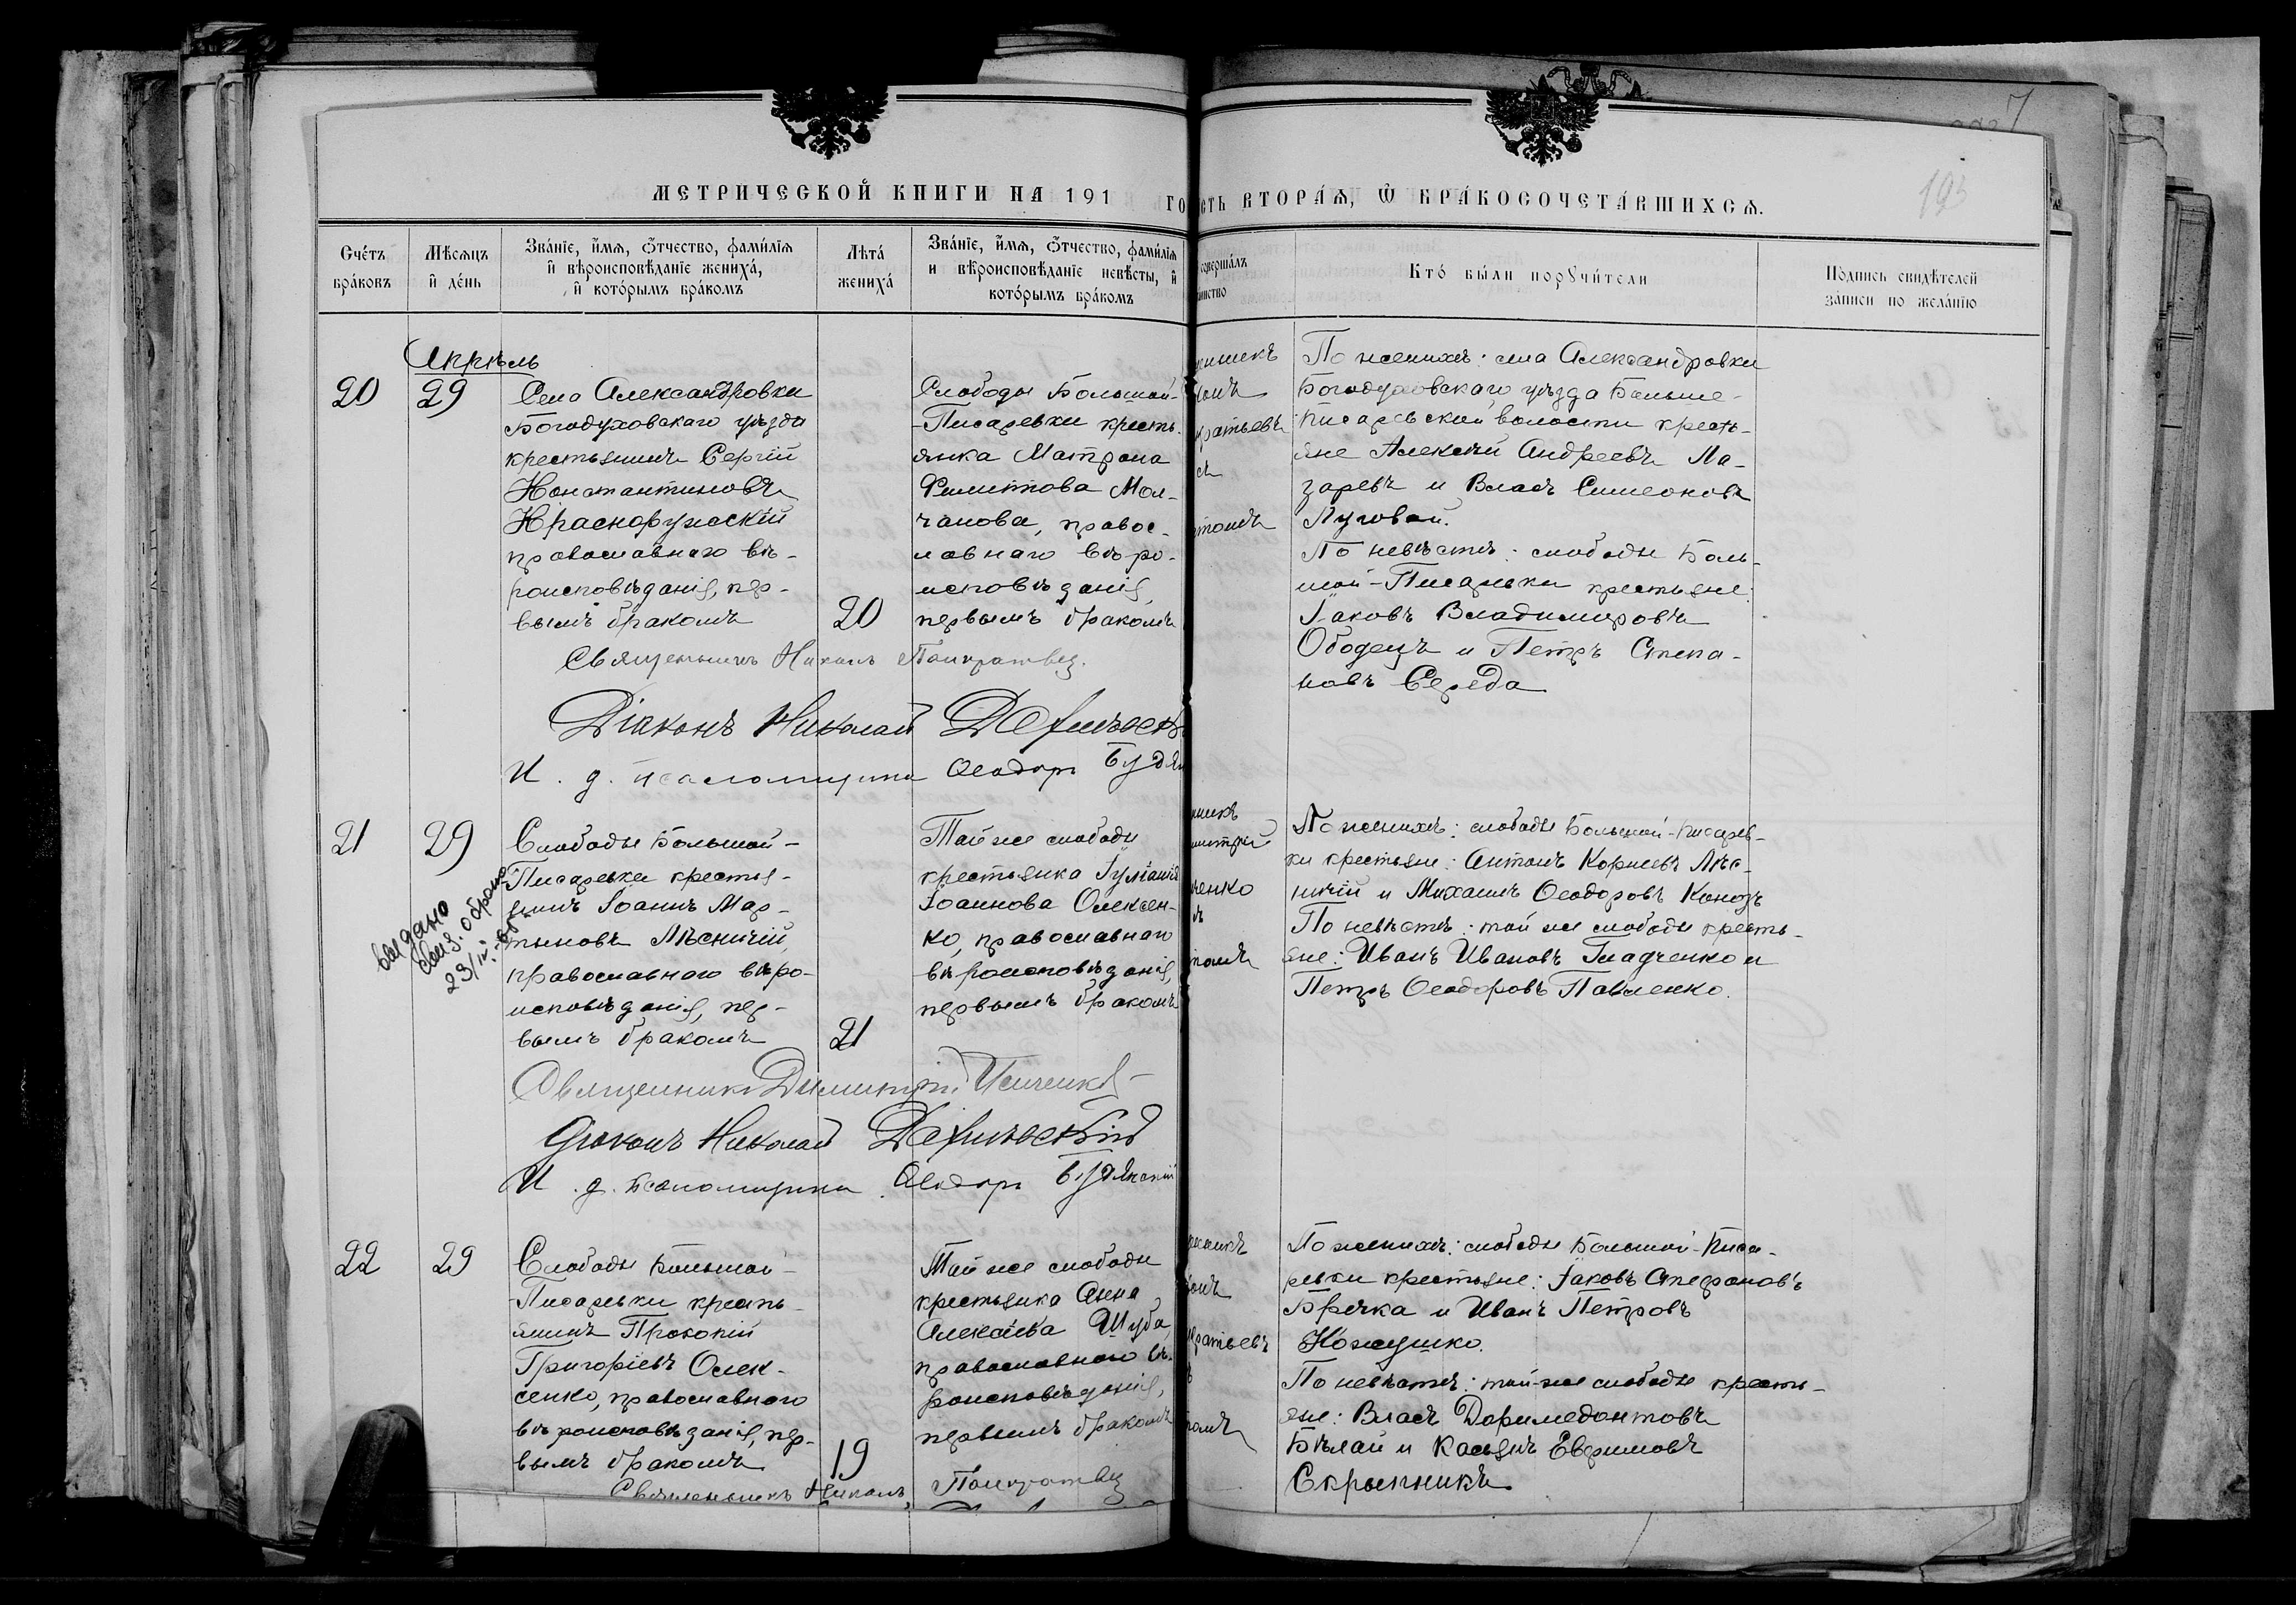 МЕТРИЧЕСКОЙ КНИГИ НА 191
ГО
СТЬ ВТОРАѦ, Ѡ БРАКОСОЧЕТАВШИХСѦ.
7
193
Счетъ
браковъ
Мѣсѧцъ
и день
Званіе, имѧ, ѻтчество, фамиліѧ
и вѣроисповѣданіе жениха,
и которымъ бракомъ
Лѣта
жениха
Званіе, имѧ, ѻтчество, фамиліѧ
и вѣроисповѣданіе невѣсты, и
которымъ бракомъ
совершалъ
таинство
Кто были порꙋчители
Подпись свидѣтелей
записи по желанію
Апрѣль
20
29
Села Александровки
Богодуховскаго уѣзда
крестьянинъ Сергій
Константиновъ
Красноружскій
православнаго вѣ-
роисповѣданія, пер-
вымъ бракомъ
20
Слободы Большой-
-Писаревки кресть-
янка Матрона
Филиппова Мол-
чанова, правос-
лавнаго вѣро-
исповѣданія,
первымъ бракомъ
По женихѣ: села Александровки
Богодуховскаго уѣзда Больше-
Писаревской волости кресть-
яне Алексѣй Андреевъ Ла-
заревъ и Власъ Симеоновъ
Луговой.
По невѣстѣ: слободы Боль-
шой-Писаревки крестьяне:
Іаковъ Владимировъ
Ободецъ и Петръ Степа-
новъ Середа
Священникъ Никонъ Панкратьевъ
Діаконъ Николай
И. д. псаломщика Ѳеодоръ Будян
21
29
выдано
свид. о бракѣ
23/III
Слободы Большой-
Писаревки кресть-
янинъ Іоаннъ Мар-
тыновъ Лѣсничій,
православнаго вѣро-
исповѣданія, пер-
вымъ бракомъ
21
Той же слободы
крестьянка Іуліанія
Іоаннова Олексен-
ко, православнаго
вѣроисповѣданія,
первымъ бракомъ
По женихѣ: слободы Большой-Писарев-
ки крестьяне: Антонъ Корнеевъ Лѣс-
ничій и Михаилъ Ѳеодоровъ
По невѣстѣ: той же слободы кресть-
яне: Иванъ Ивановъ Гладченко и
Петръ Ѳеодоровъ Павленко.
Священникъ Димитрій
Діаконъ Николай
И. д. псаломщика Ѳеодоръ Будянскій
22
29
Слободы Большой-
Писаревки кресть-
янинъ Прокопій
Григоріевъ Олек-
сенко, православнаго
вѣроисповѣданія, пер-
вымъ бракомъ
19
Той же слободы
крестьянка Анна
Алексѣева Шуба,
православнаго вѣ-
роисповѣданія,
первымъ бракомъ
По женихѣ: слободы Большой-Писа-
ревки крестьяне: Іаковъ Стефановъ
и Иванъ Петровъ
Кожушко.
По невѣстѣ: той-же слободы кресть-
яне: Власъ Доримедонтовъ
Бѣлай и Касьянъ Евфимовъ
Скрыпникъ
Священникъ Никонъ Панкратьевъ